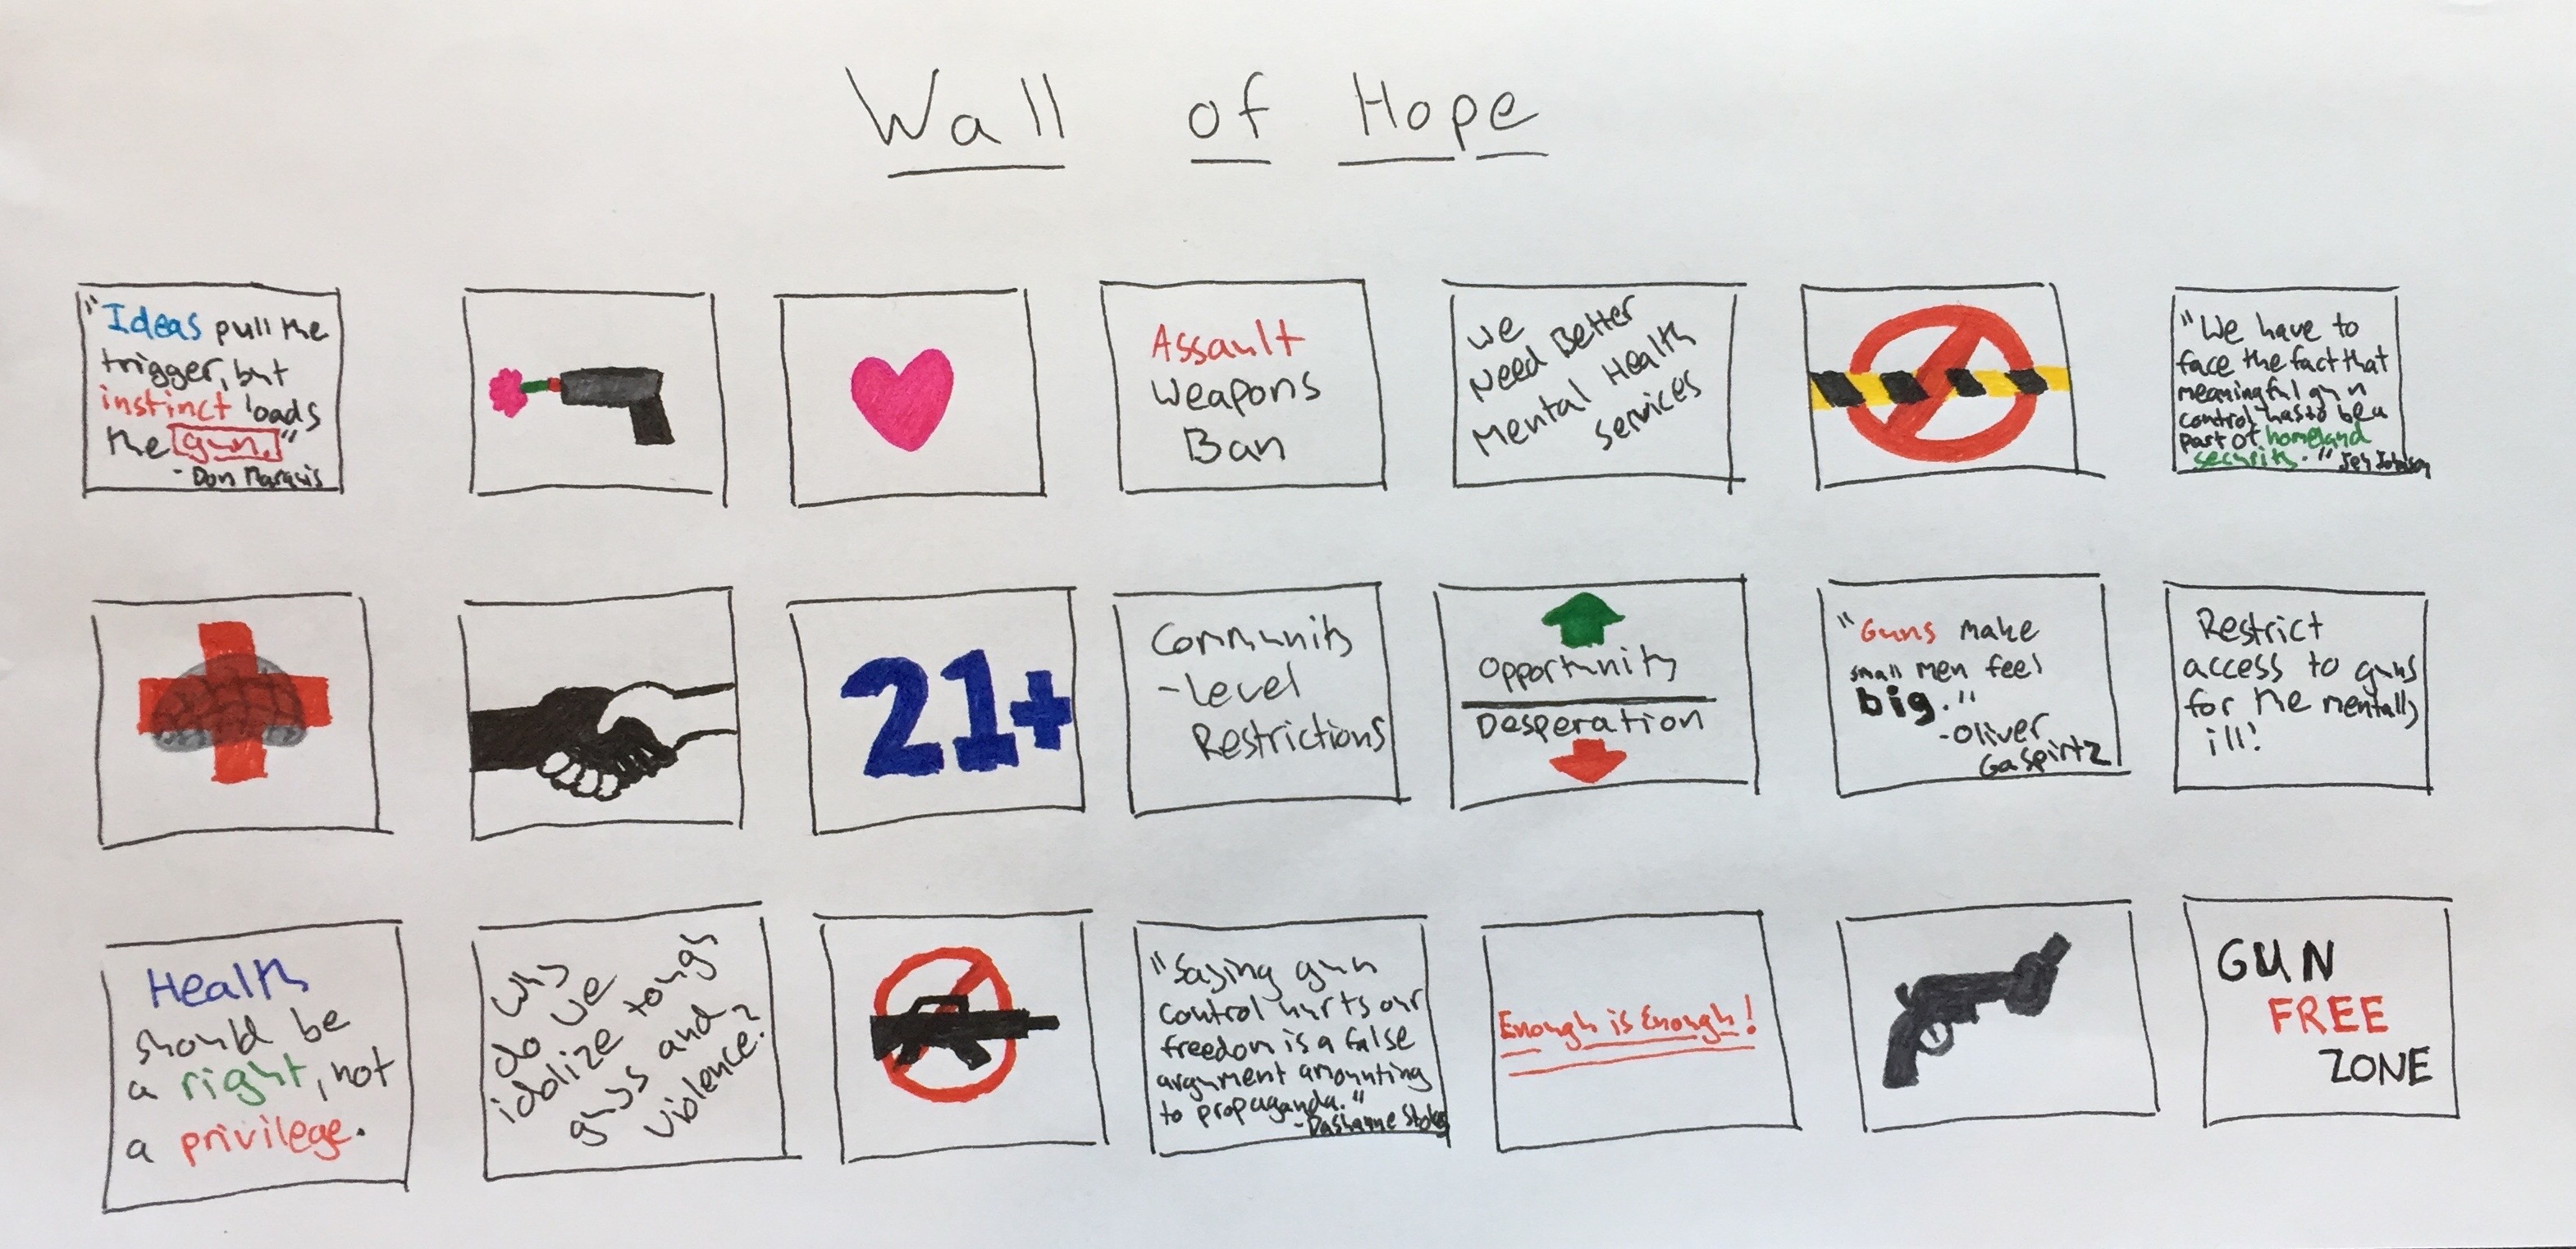 Wall of Hope
"Ideas pull the
trigger, but
instinct loads
the gun."
- Don Marquis
Assault
Weapons
Ban
We
Need Better
Mental Health
Services
"We have to
face the fact that
meaningful gun
control has to be a
part of homeland
security." Jeh Johnson
21+
Community
-Level
Restrictions
Opportunity
Desperation
"Guns make
small men feel
big."
-Oliver
Gaspirtz
Restrict
access to guns
for the mentally
ill!
Health
should be
a right, not
a privilege.
Why
do we
idolize toughs
guys and
violence?
"Saying gun
control hurts our
freedom is a false
argument amounting
to propaganda."
-Dashanne Stokes
Enough is Enough!
GUN
FREE
ZONE